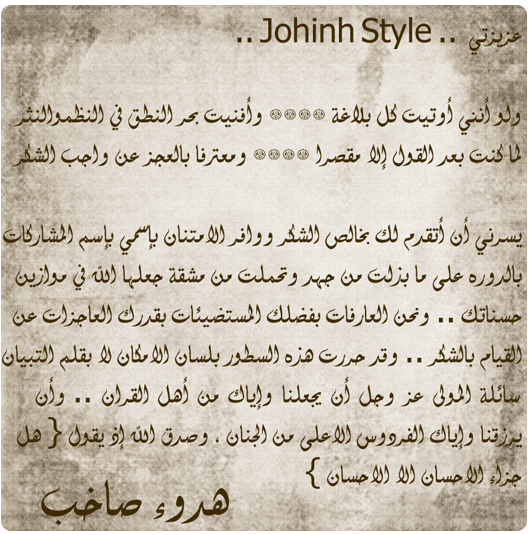 عزيزتي .. Johinh Style ..
ولو أنني أوتيت كل بلاغة **** وأفنيت بحر النطق في النظم والنثر
لما كنت بعد القول إلا مقصرا **** ومعترفا بالعجز عن واجب الشكر
يسرني أن أتقدم لك بخالص الشكر ووافر الامتنان بإسمي بإسم المشاركات
بالدوره على ما بذلت من جهد وتحملت من مشقة جعلها الله في موازين
حسناتك .. ونحن العارفات بفضلك المستضيئات بقدرك العاجزات عن
القيام بالشكر .. وقد حررت هذه السطور بلسان الامكان لا بقلم التبيان
سائلة المولى عز وجل أن يجعلنا وإياك من أهل القران .. وأن
يرزقنا وإياك الفردوس الاعلى من الجنان ، وصدق الله إذ يقول { هل
جزاء الاحسان الا الاحسان }
هدوء صاخب